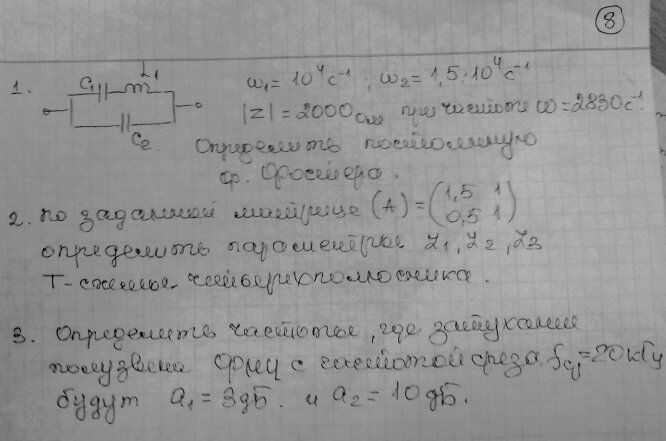 8
1. C₁ L₁ ω₁ = 10⁴ с⁻¹; ω₂ = 1,5·10⁴ с⁻¹
|Z| = 2000 Ом при частоте ω = 2830 с⁻¹.
C₂ Определить постоянную
ф. Фостера.
2. По заданной матрице (A) = (1,5 1
0,5 1)
определить параметры Z₁, Z₂, Z₃
Т-схемы четырехполюсника.
3. Определить частоты, где затухание
полузвена ФНЧ с частотой среза f = 20 кГц
будут a₁ = 3 дБ. и a₂ = 10 дБ.